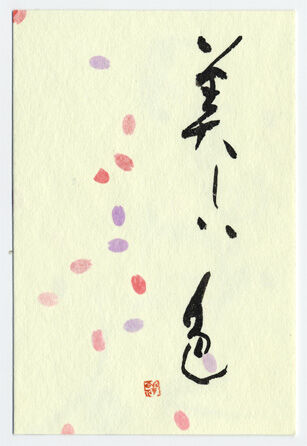 美しい色